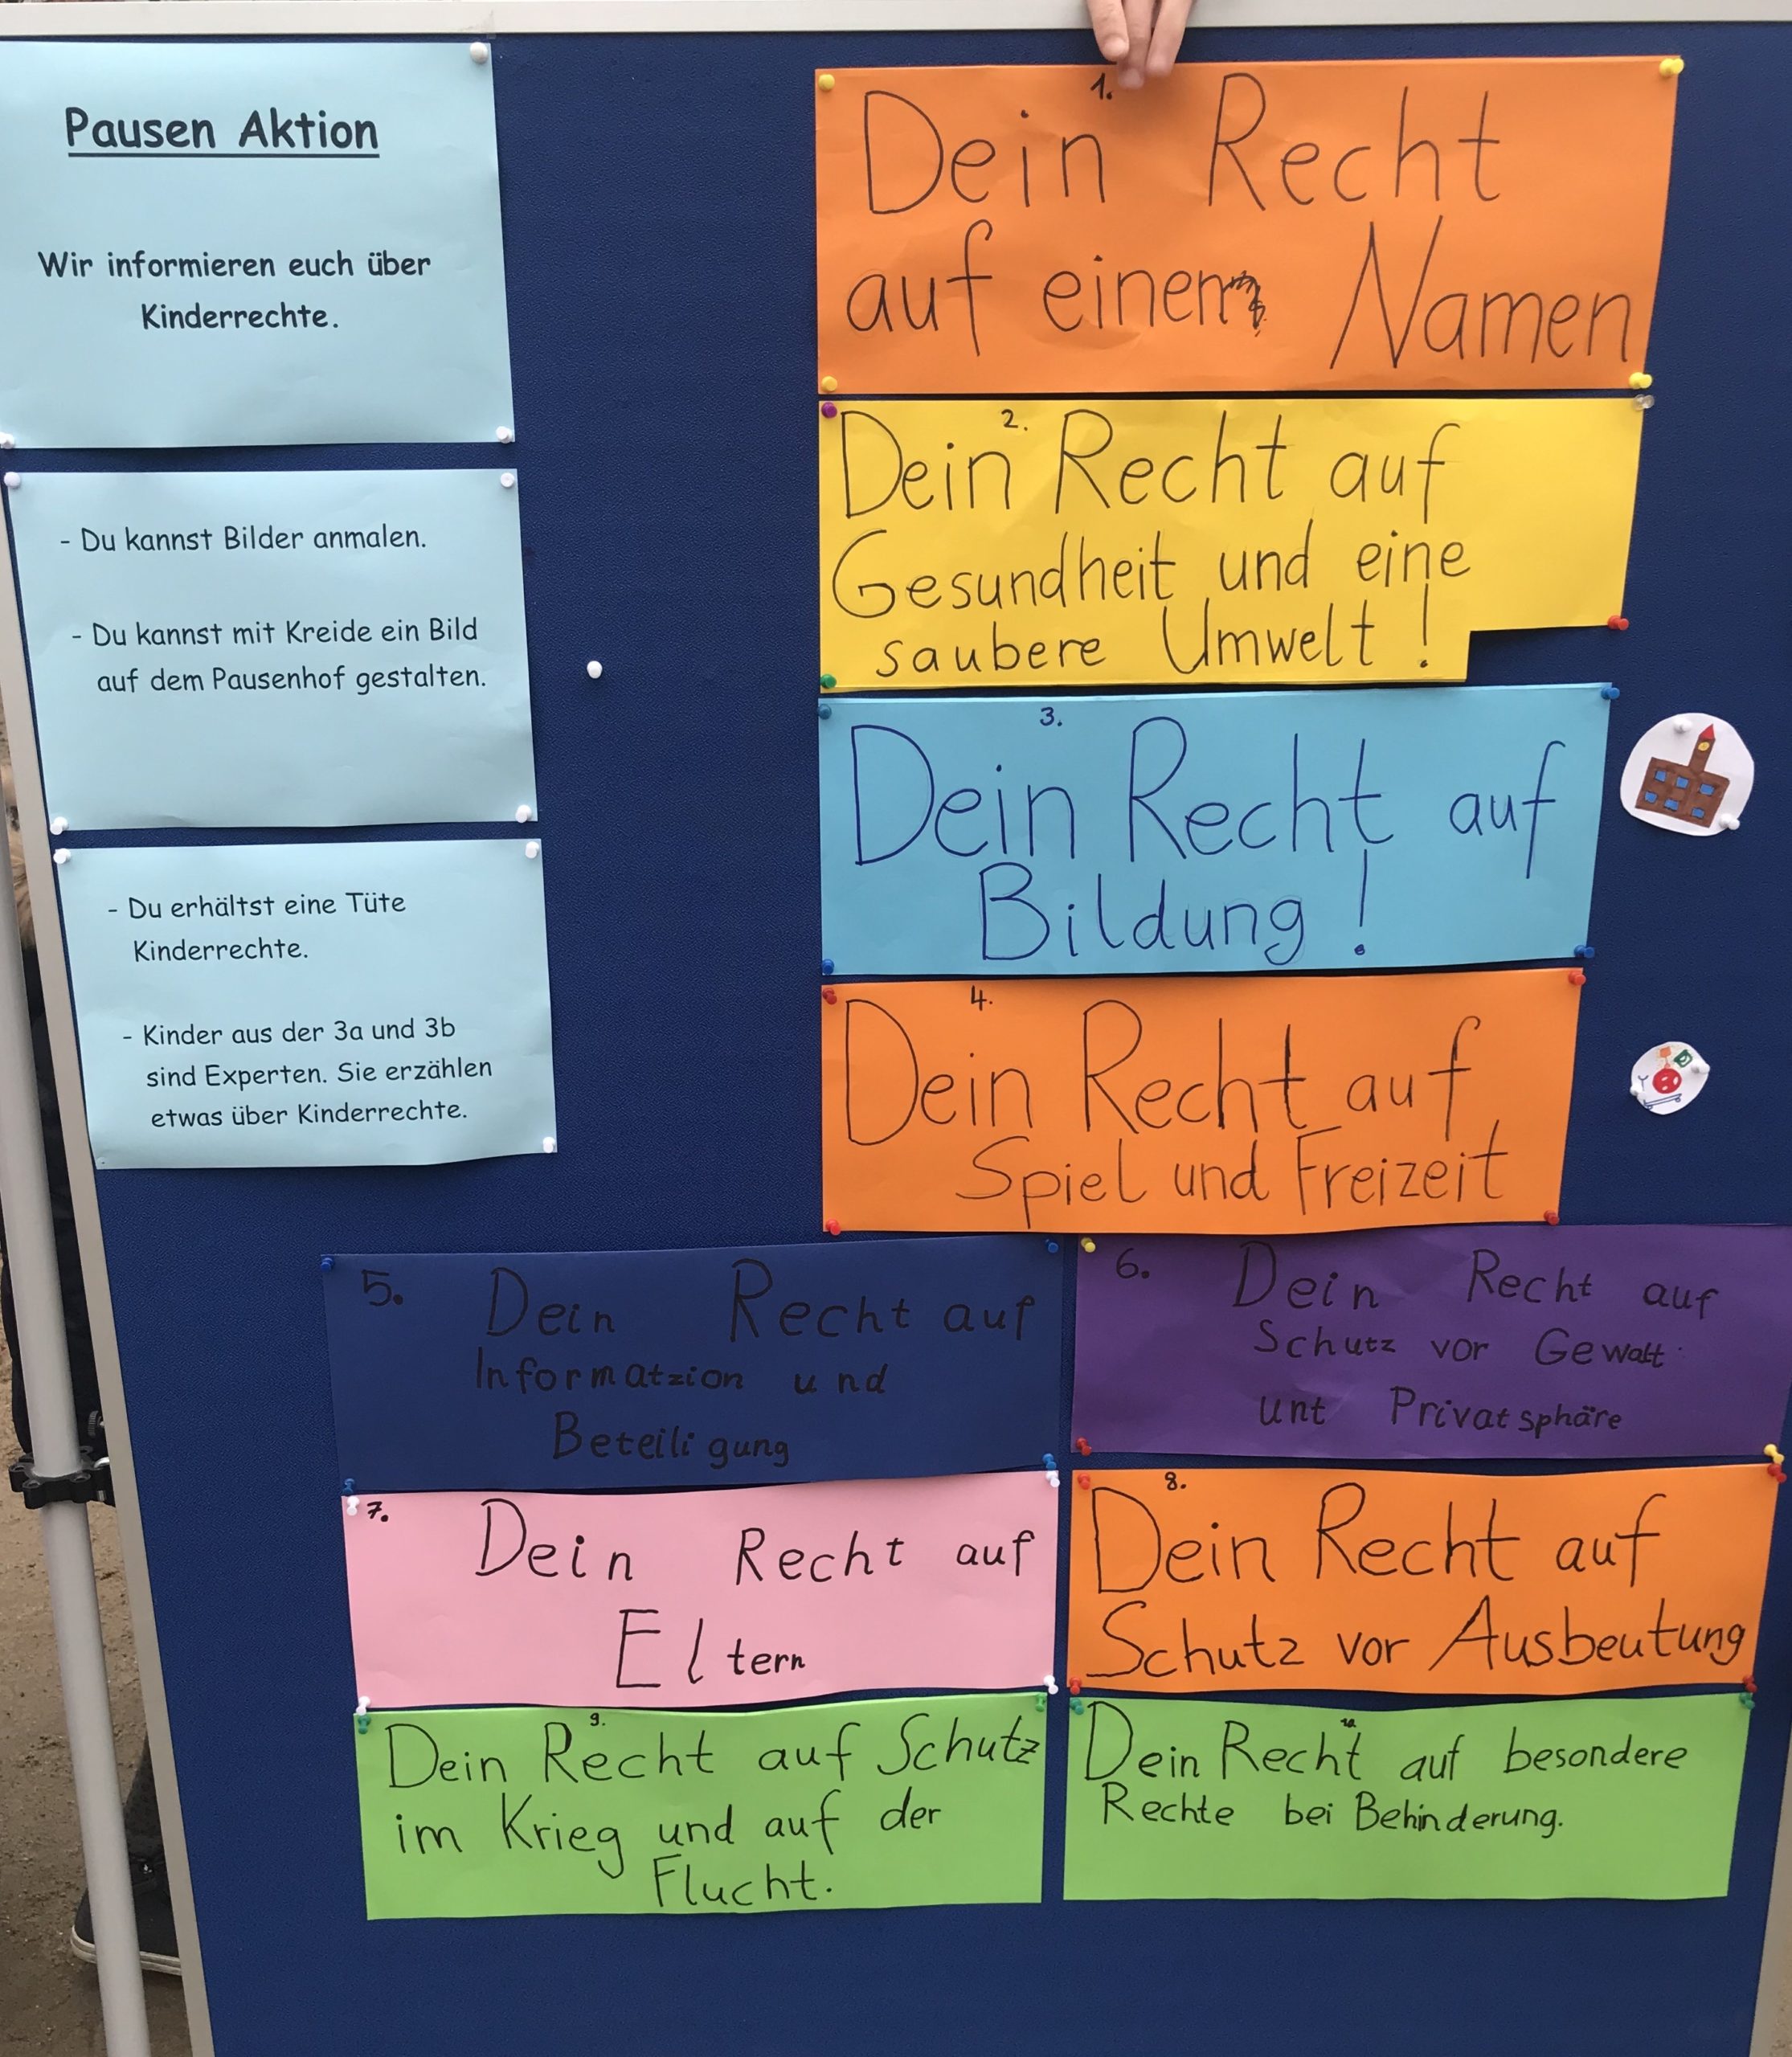 Pausen Aktion
Wir informieren euch über
Kinderrechte.
- Du kannst Bilder anmalen.
- Du kannst mit Kreide ein Bild
auf dem Pausenhof gestalten.
- Du erhältst eine Tüte
Kinderrechte.
- Kinder aus der 3a und 3b
sind Experten. Sie erzählen
etwas über Kinderrechte.
1.
Dein Recht
auf einen Namen
2.
Dein Recht auf
Gesundheit und eine
saubere Umwelt!
3.
Dein Recht auf
Bildung!
4.
Dein Recht auf
Spiel und Freizeit
5. Dein Recht auf
Informatzion und
Beteiligung
6. Dein Recht auf
Schutz vor Gewalt
unt Privatsphäre
7. Dein Recht auf
Eltern
8.
Dein Recht auf
Schutz vor Ausbeutung
9.
Dein Recht auf Schutz
im Krieg und auf der
Flucht.
10.
Dein Recht auf besondere
Rechte bei Behinderung.